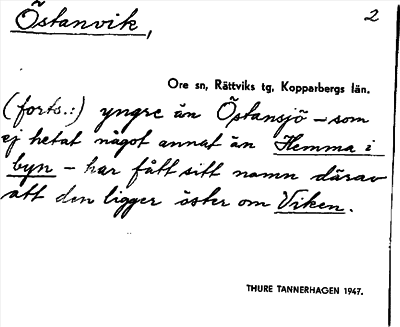 Östanvik, 2
Ore sn, Rättviks tg, Kopparbergs län.
(forts.:) yngre än Östansjö – som
ej hetat något annat än Hemma i
byn – har fått sitt namn därav
att den ligger öster om Viken.
THURE TANNERHAGEN 1947.